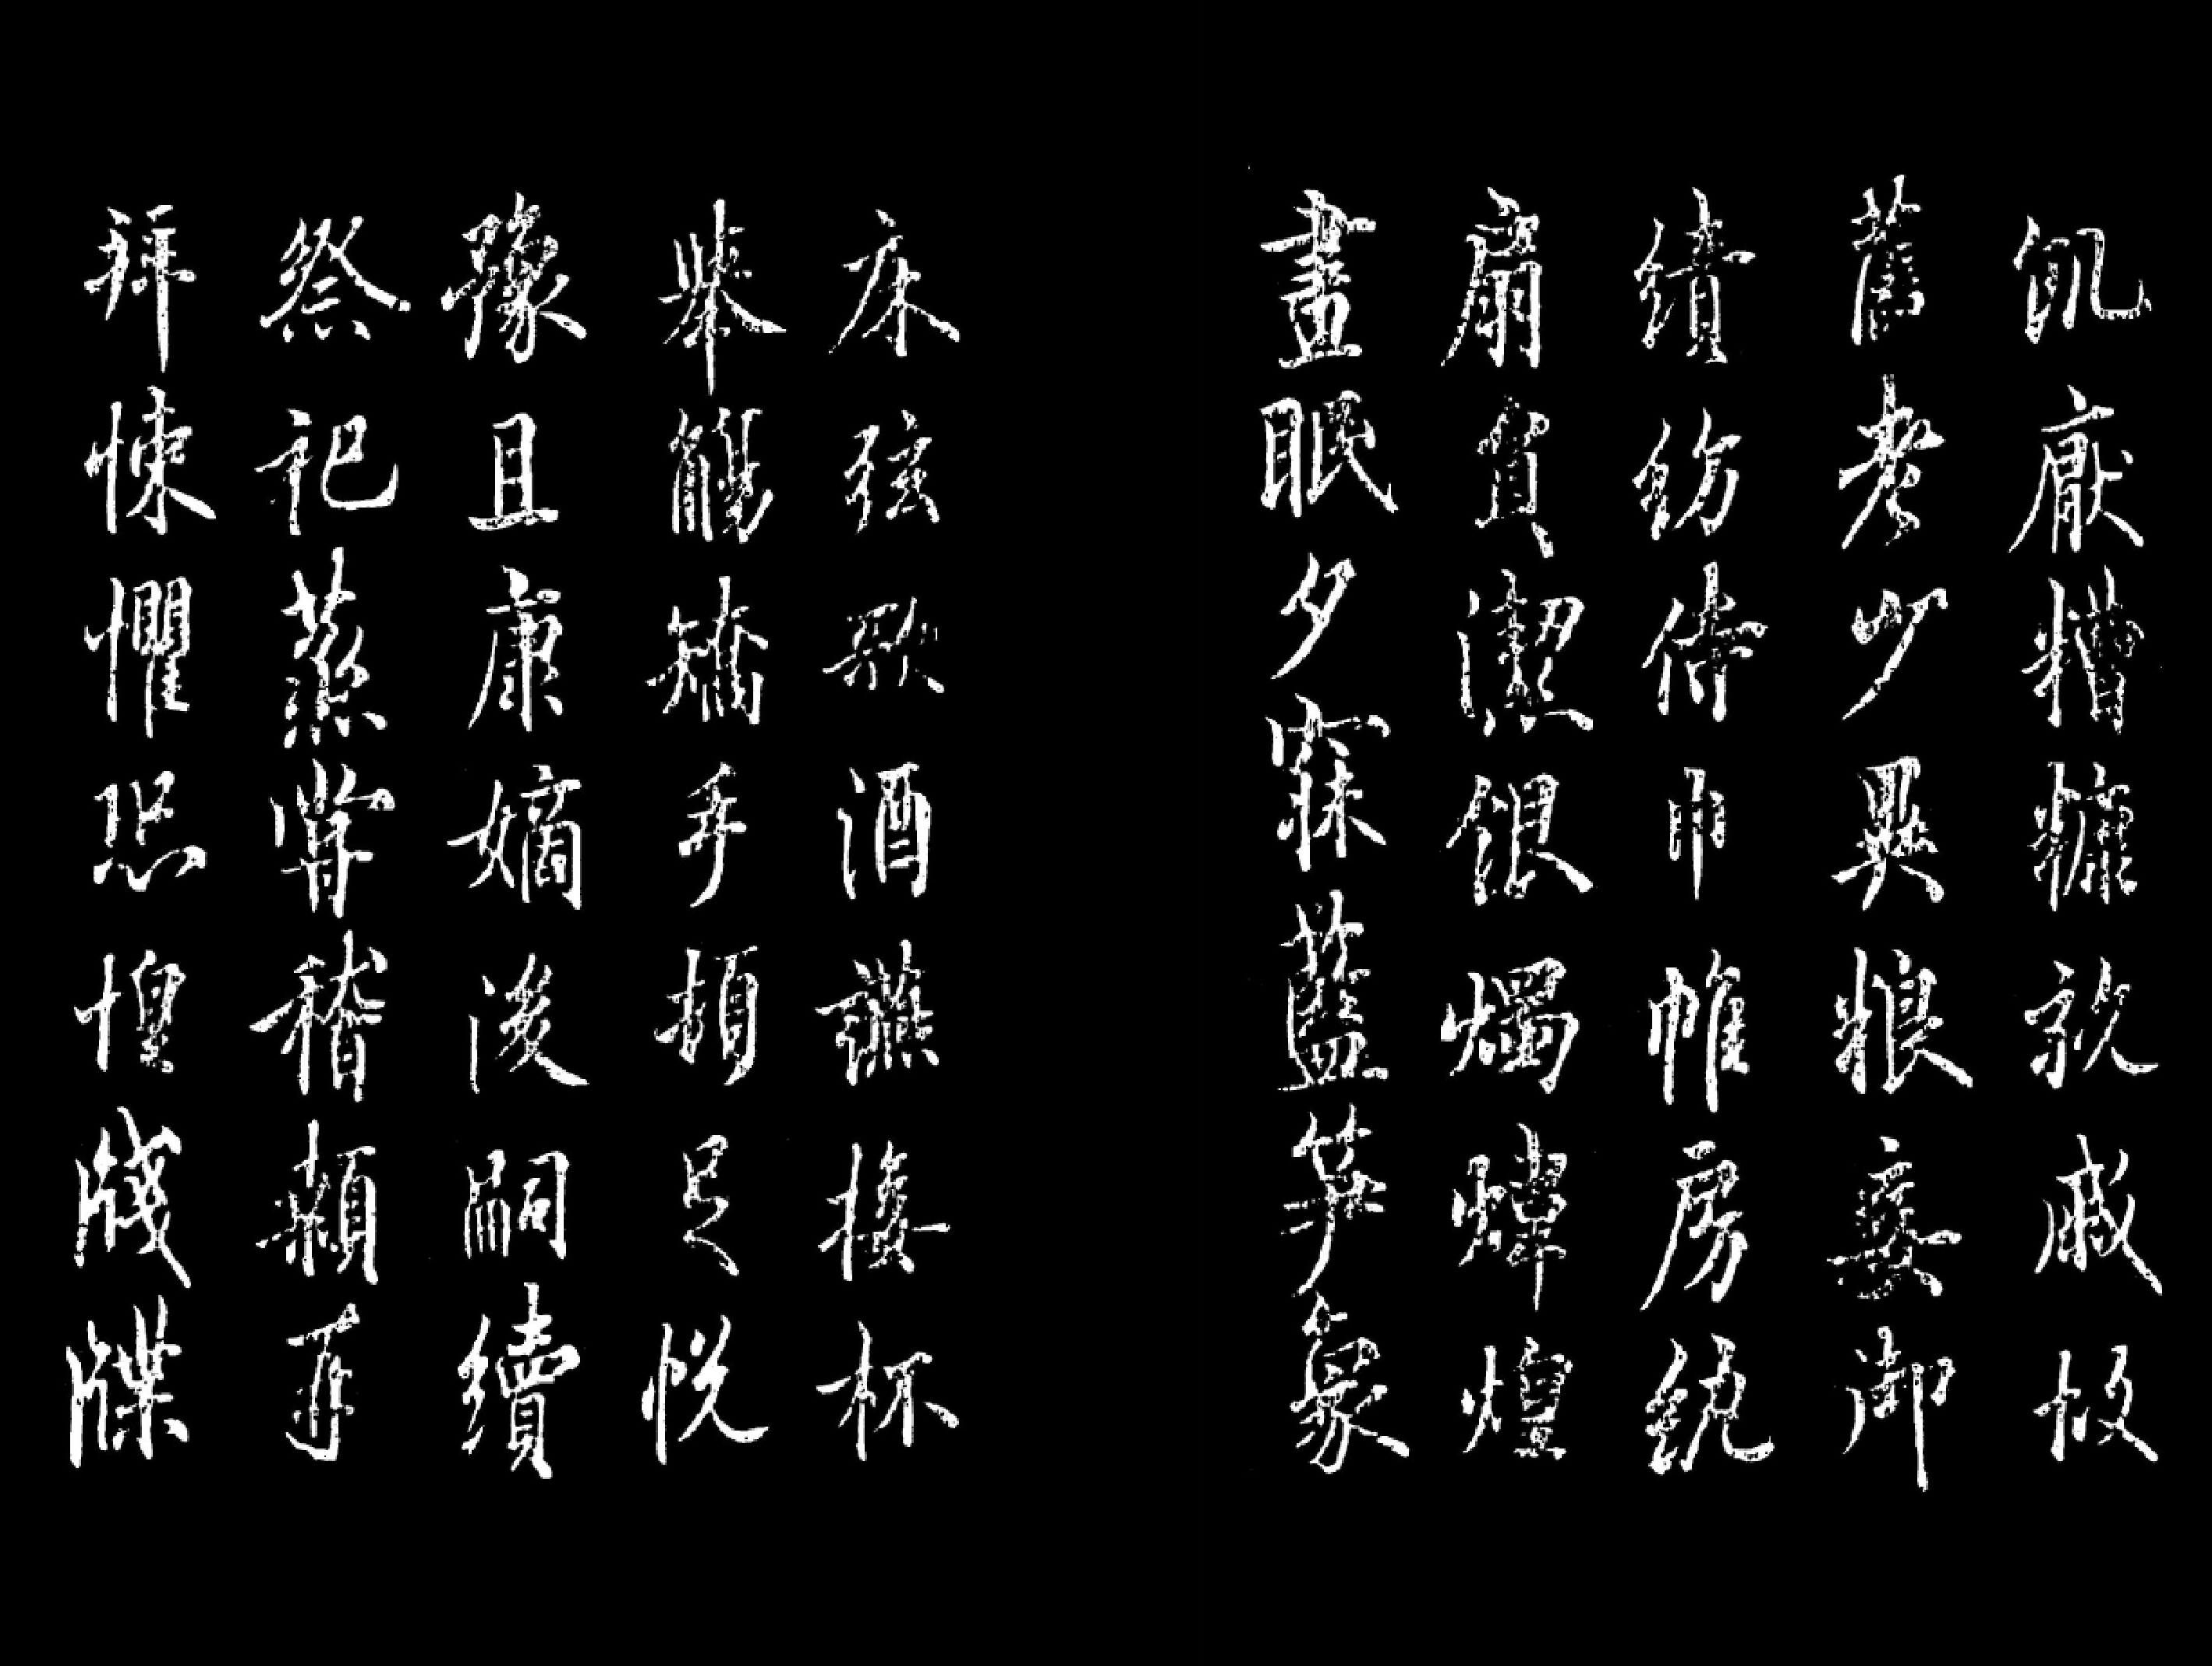 飢厭糟糠親戚故
舊老少異粮妾御
績紡侍巾帷房紈
扇員潔銀燭煒煌
晝眠夕寐藍笋象
床弦歌酒讌接杯
舉觴矯手頓足悅
豫且康嫡後嗣續
祭祀蒸嘗稽顙再
拜悚懼恐惶牋牒